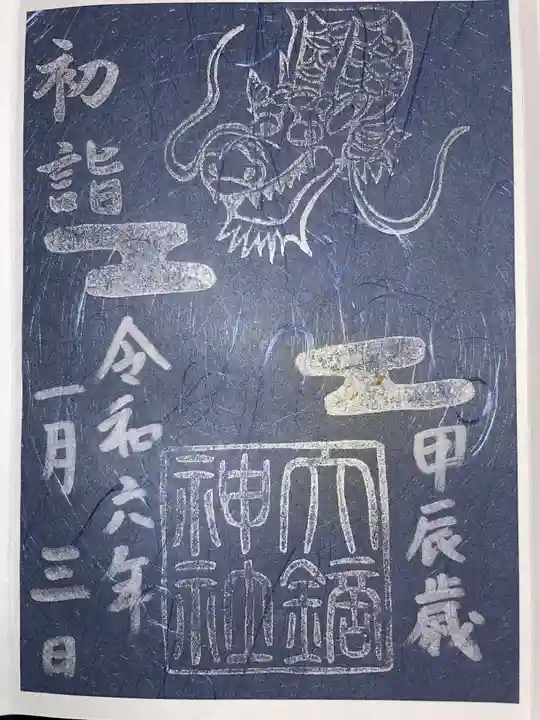 甲辰歳
大鏑神社
初詣
令和六年
一月三日